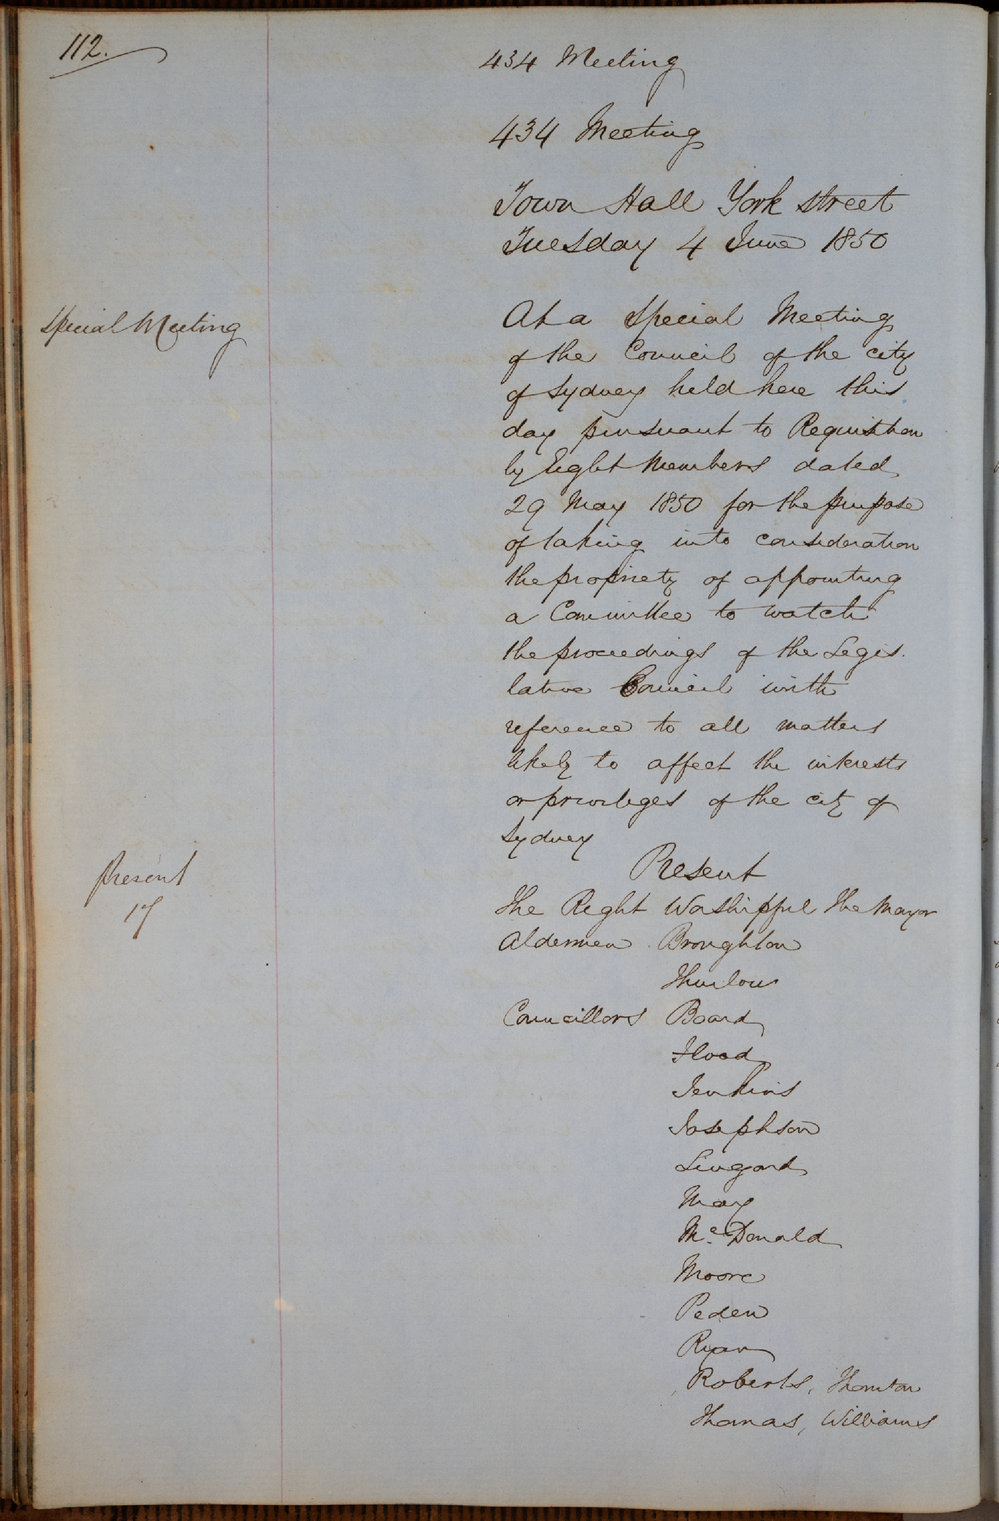 112.
434 Meeting
434 Meeting
Town Hall York street
Tuesday 4 June 1850
Special Meeting
At a Special Meeting
of the Council of the city
of Sydney held here this
day pursuant to Requisition
by Eight Members dated
29 May 1850 for the purpose
of taking into consideration
the propriety of appointing
a Committee to watch
the proceedings of the Legis.
lative Council with
reference to all matters
likely to affect the interests
or privileges of the city of
Sydney
Present
17
Present
The Right Worshipful The Mayor
Aldermen Broughton
Thurlow
Councillors Board
Flood
Jenkins
Josephson
Lingard
May
McDonald
Moore
Peden
Ryan
Roberts, Thornton
Thomas, Williams